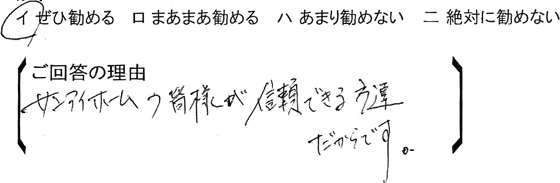 イ ぜひ勧める ロ まあまあ勧める ハ あまり勧めない ニ 絶対に勧めない
ご回答の理由
サンアイホームの皆様が信頼できる方達
だからです。